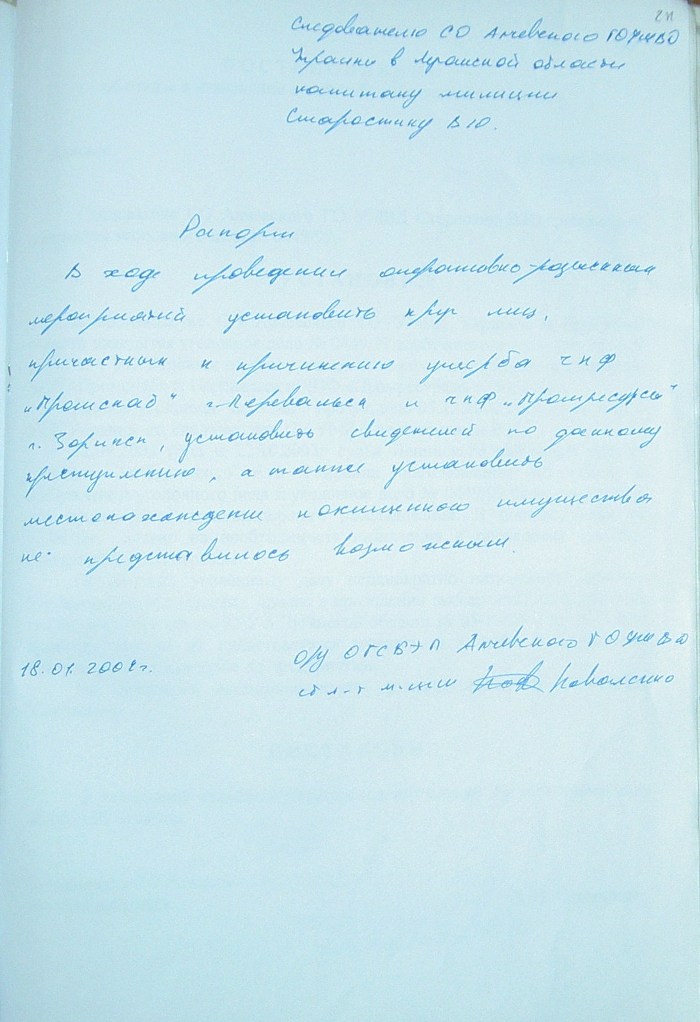 Следователю СО Алчевского ГОУМВД
Украины в Луганской области
капитану милиции
Старостину В.Ю.
Рапорт
В ходе проведения оперативно-розыскных
мероприятий установить круг лиц,
причастных к причинению ущерба ЧПФ
"Промснаб" г. Перевальск и ЧПФ "Промресурсы"
г. Зоринск, установить свидетелей по данному
преступлению, а также установить
местонахождение похищенного имущества
не представилось возможным.
18.01.2002г.
О/У ОГСБЭП Алчевского ГОУМВД
ст. л-т м-ции Коваленко